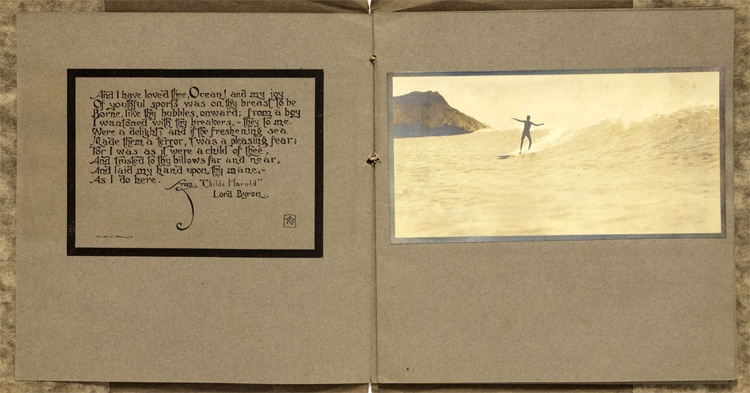 And I have loved thee, Ocean! and my joy
Of youthful sports was on thy breast to be
Borne, like thy bubbles, onward; from a boy
I wantoned with thy breakers, - they to me
Were a delight; and if the freshening sea
Made them a terror, 'twas a pleasing fear;
For I was as it were a child of thee,
And trusted to thy billows far and near,
And laid my hand upon thy mane, -
As I do here.
From "Childe Harold"
Lord Byron